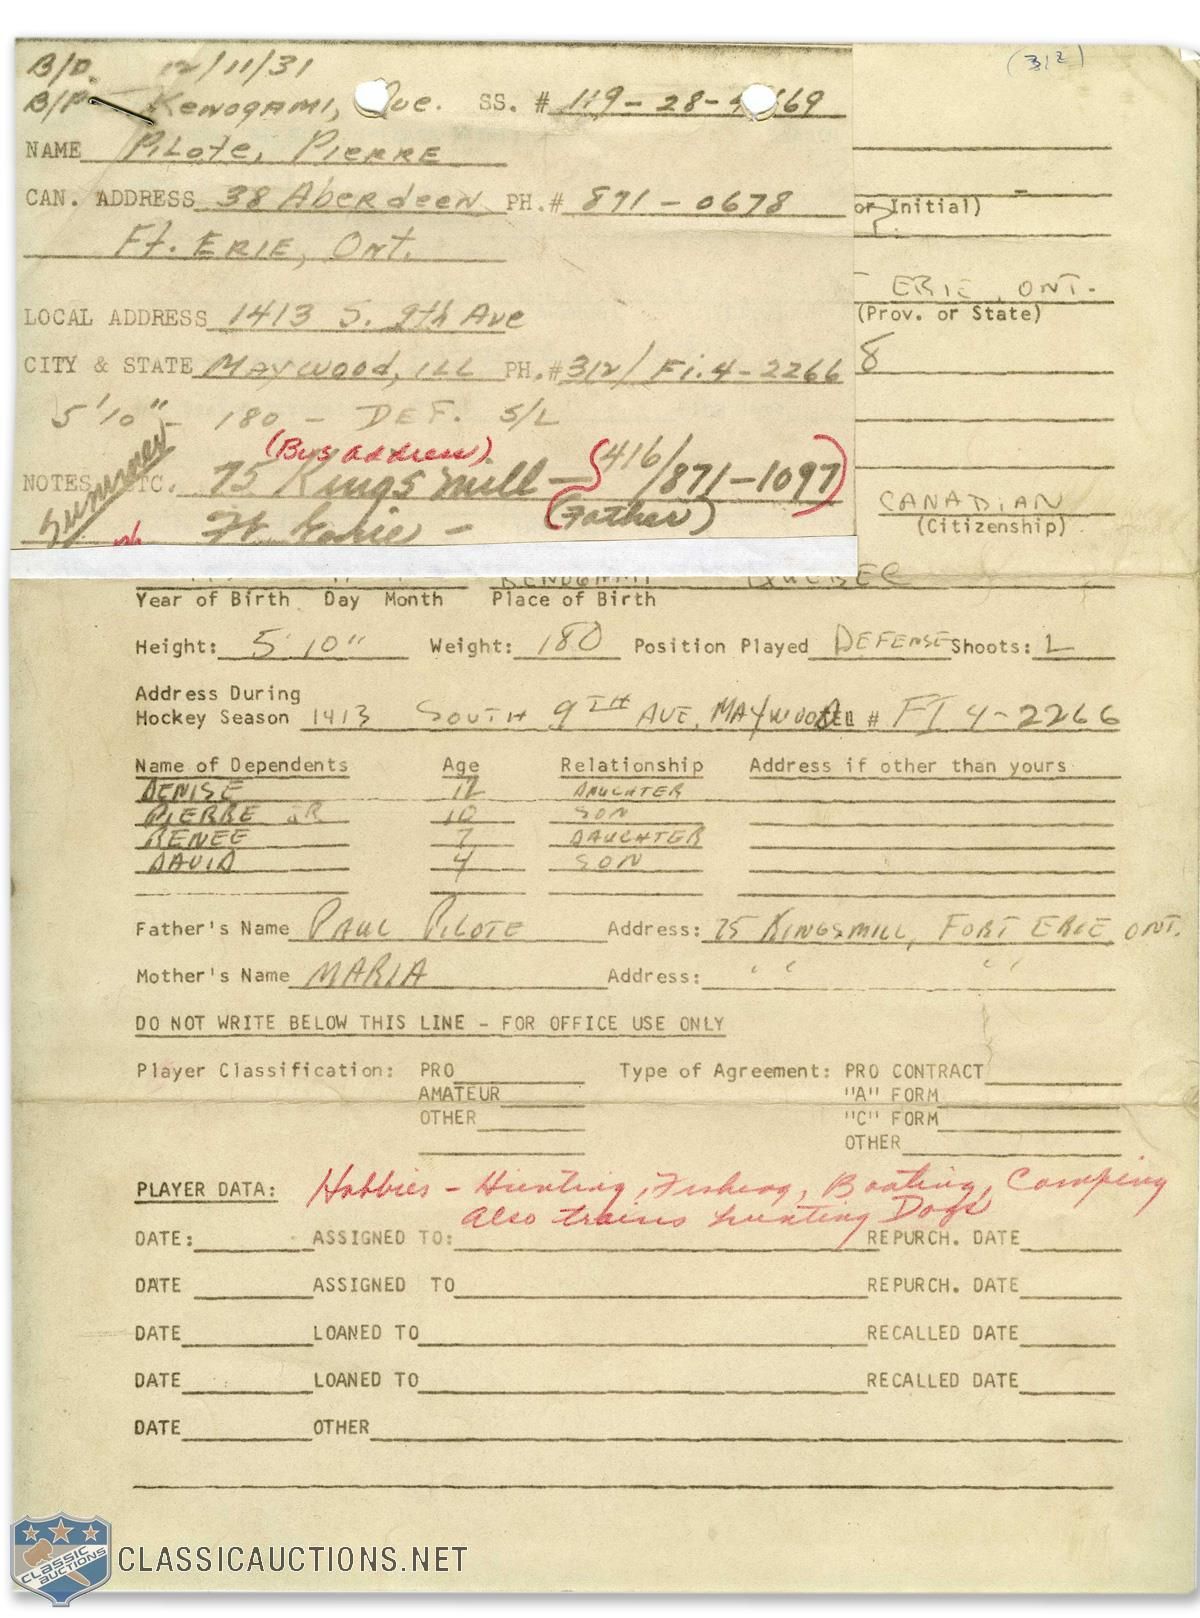 B/D. 12/11/31
B/P. Kenogami, Que. SS. # 119-28-
NAME Pilote, Pierre
CAN. ADDRESS 38 Aberdeen PH.# 871-0678
Ft. Erie, Ont.
LOCAL ADDRESS 1413 S. 9th Ave
CITY & STATE Maywood, ILL PH.#312/ Fi.4-2266
5'10" - 180 - DEF. S/L
(Bus address)
NOTES ETC. 75 Kings mill - (416/871-1097)
Summer Ft. Erie - (Father)
(312)
or Initial)
ERIE, ONT.
(Prov. or State)
8
CANADIAN
(Citizenship)
KENOGAMI QUEBEC
Year of Birth Day Month Place of Birth
Height: 5'10" Weight: 180 Position Played DEFENSE Shoots: L
Address During
Hockey Season 1413 SOUTH 9TH AVE, MAYWOOD Tel # FI 4-2266
Name of Dependents Age Relationship Address if other than yours
DENISE 12 DAUGHTER
PIERRE JR 10 SON
RENEE 7 DAUGHTER
DAVID 4 SON
Father's Name PAUL PILOTE Address: 75 KINGSMILL, FORT ERIE, ONT.
Mother's Name MARIA Address: " "
DO NOT WRITE BELOW THIS LINE - FOR OFFICE USE ONLY
Player Classification: PRO Type of Agreement: PRO CONTRACT
AMATEUR "A" FORM
OTHER "C" FORM
OTHER
PLAYER DATA: Hobbies - Hunting, Fishing, Boating, Camping
also trains hunting Dogs
DATE: ASSIGNED TO: REPURCH. DATE
DATE ASSIGNED TO REPURCH. DATE
DATE LOANED TO RECALLED DATE
DATE LOANED TO RECALLED DATE
DATE OTHER
CLASSIC AUCTIONS
CLASSICAUCTIONS.NET